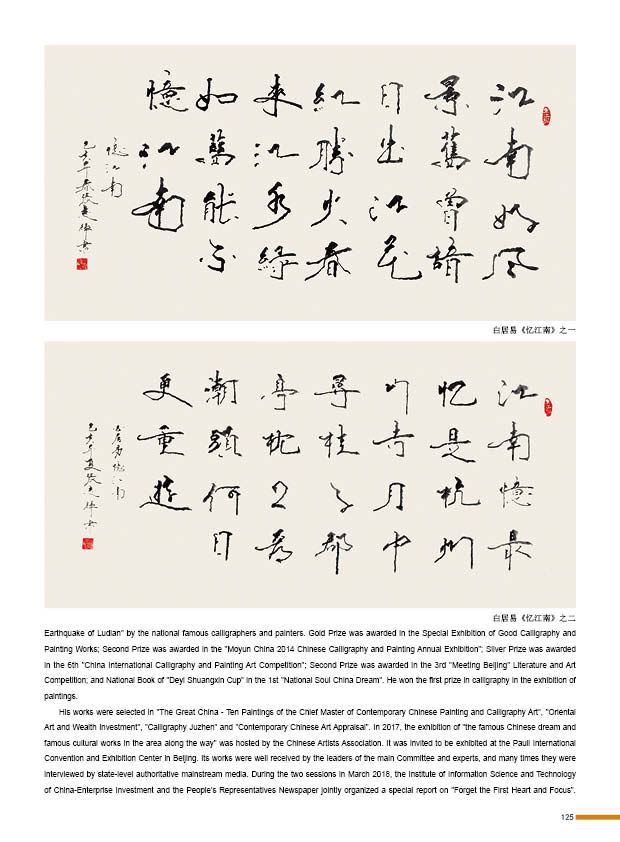 江南好风
景舊曾諳
日出江花
紅勝火春
來江水綠
如藍能不
憶江南
憶江南
白居易《忆江南》之一
江南憶最
忆是杭州
山寺月中
尋桂子郡
亭枕上看
潮頭何日
更重遊
白居易憶江南
白居易《忆江南》之二
Earthquake of Ludian" by the national famous calligraphers and painters. Gold Prize was awarded in the Special Exhibition of Good Calligraphy and
Painting Works; Second Prize was awarded in the "Moyun China 2014 Chinese Calligraphy and Painting Annual Exhibition"; Silver Prize was awarded
in the 6th "China International Calligraphy and Painting Art Competition"; Second Prize was awarded in the 3rd "Meeting Beijing" Literature and Art
Competition; and National Book of "Deyi Shuangxin Cup" in the 1st "National Soul China Dream". He won the first prize in calligraphy in the exhibition of
paintings.
His works were selected in "The Great China - Ten Paintings of the Chief Master of Contemporary Chinese Painting and Calligraphy Art", "Oriental
Art and Wealth Investment", "Calligraphy Juzhen" and "Contemporary Chinese Art Appraisal". In 2017, the exhibition of "the famous Chinese dream and
famous cultural works in the area along the way" was hosted by the Chinese Artists Association. It was invited to be exhibited at the Pauli International
Convention and Exhibition Center in Beijing. Its works were well received by the leaders of the main Committee and experts, and many times they were
interviewed by state-level authoritative mainstream media. During the two sessions in March 2018, the Institute of Information Science and Technology
of China-Enterprise Investment and the People's Representatives Newspaper jointly organized a special report on "Forget the First Heart and Focus".
125